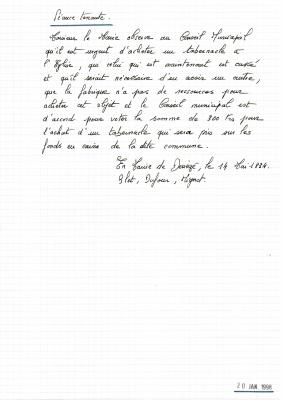 Séance tenante.
Monsieur le Maire observe au Conseil Municipal
qu'il est urgent d'acheter un tabernacle à
l'Eglise, que celui qui est maintenant est cassé
et qu'il serait nécessaire d'en avoir un autre,
que la fabrique n'a pas de ressources pour
acheter cet objet et le Conseil municipal est
d'accord pour voter la somme de 300 Frs pour
l'achat d'un tabernacle qui sera pris sur les
fonds en caisse de la dite commune.
En Mairie de, le 14 Mai 1824.
Dufour, Mignot.
20 JAN. 1998